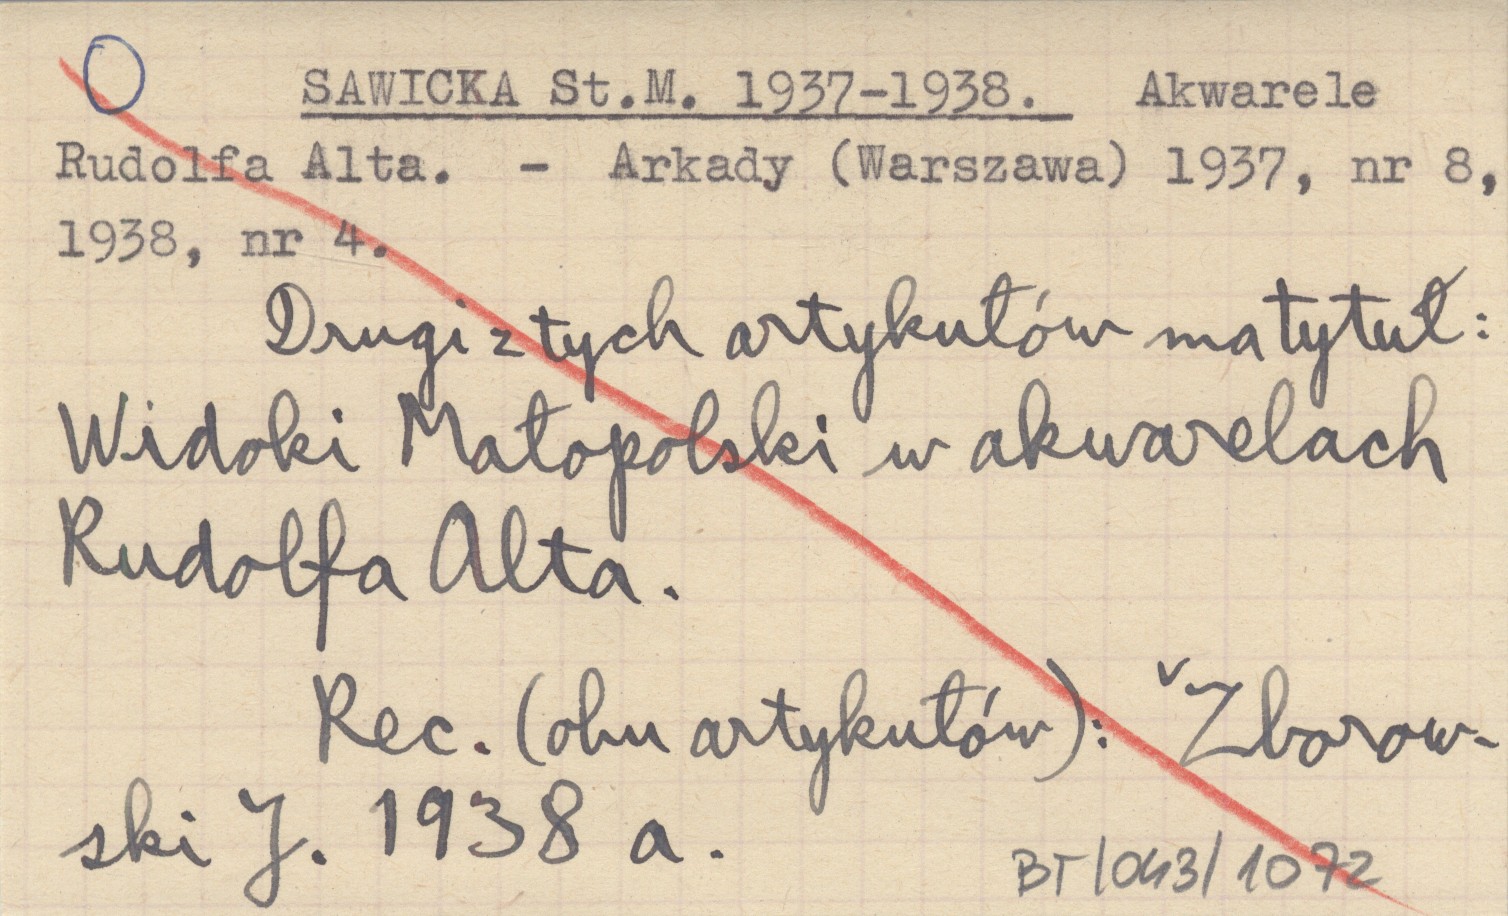 SAWICKA St.M. 1937-1938. Akwarele
Rudolfa Alta. - Arkady (Warszawa) 1937, nr 8,
1938, nr 4.
Drugi z tych artykułów ma tytuł:
Widoki Małopolski w akwarelach
Rudolfa Alta.
Rec. (obu artykułów): Zborow-
ski J. 1938 a.
BT/043/1072